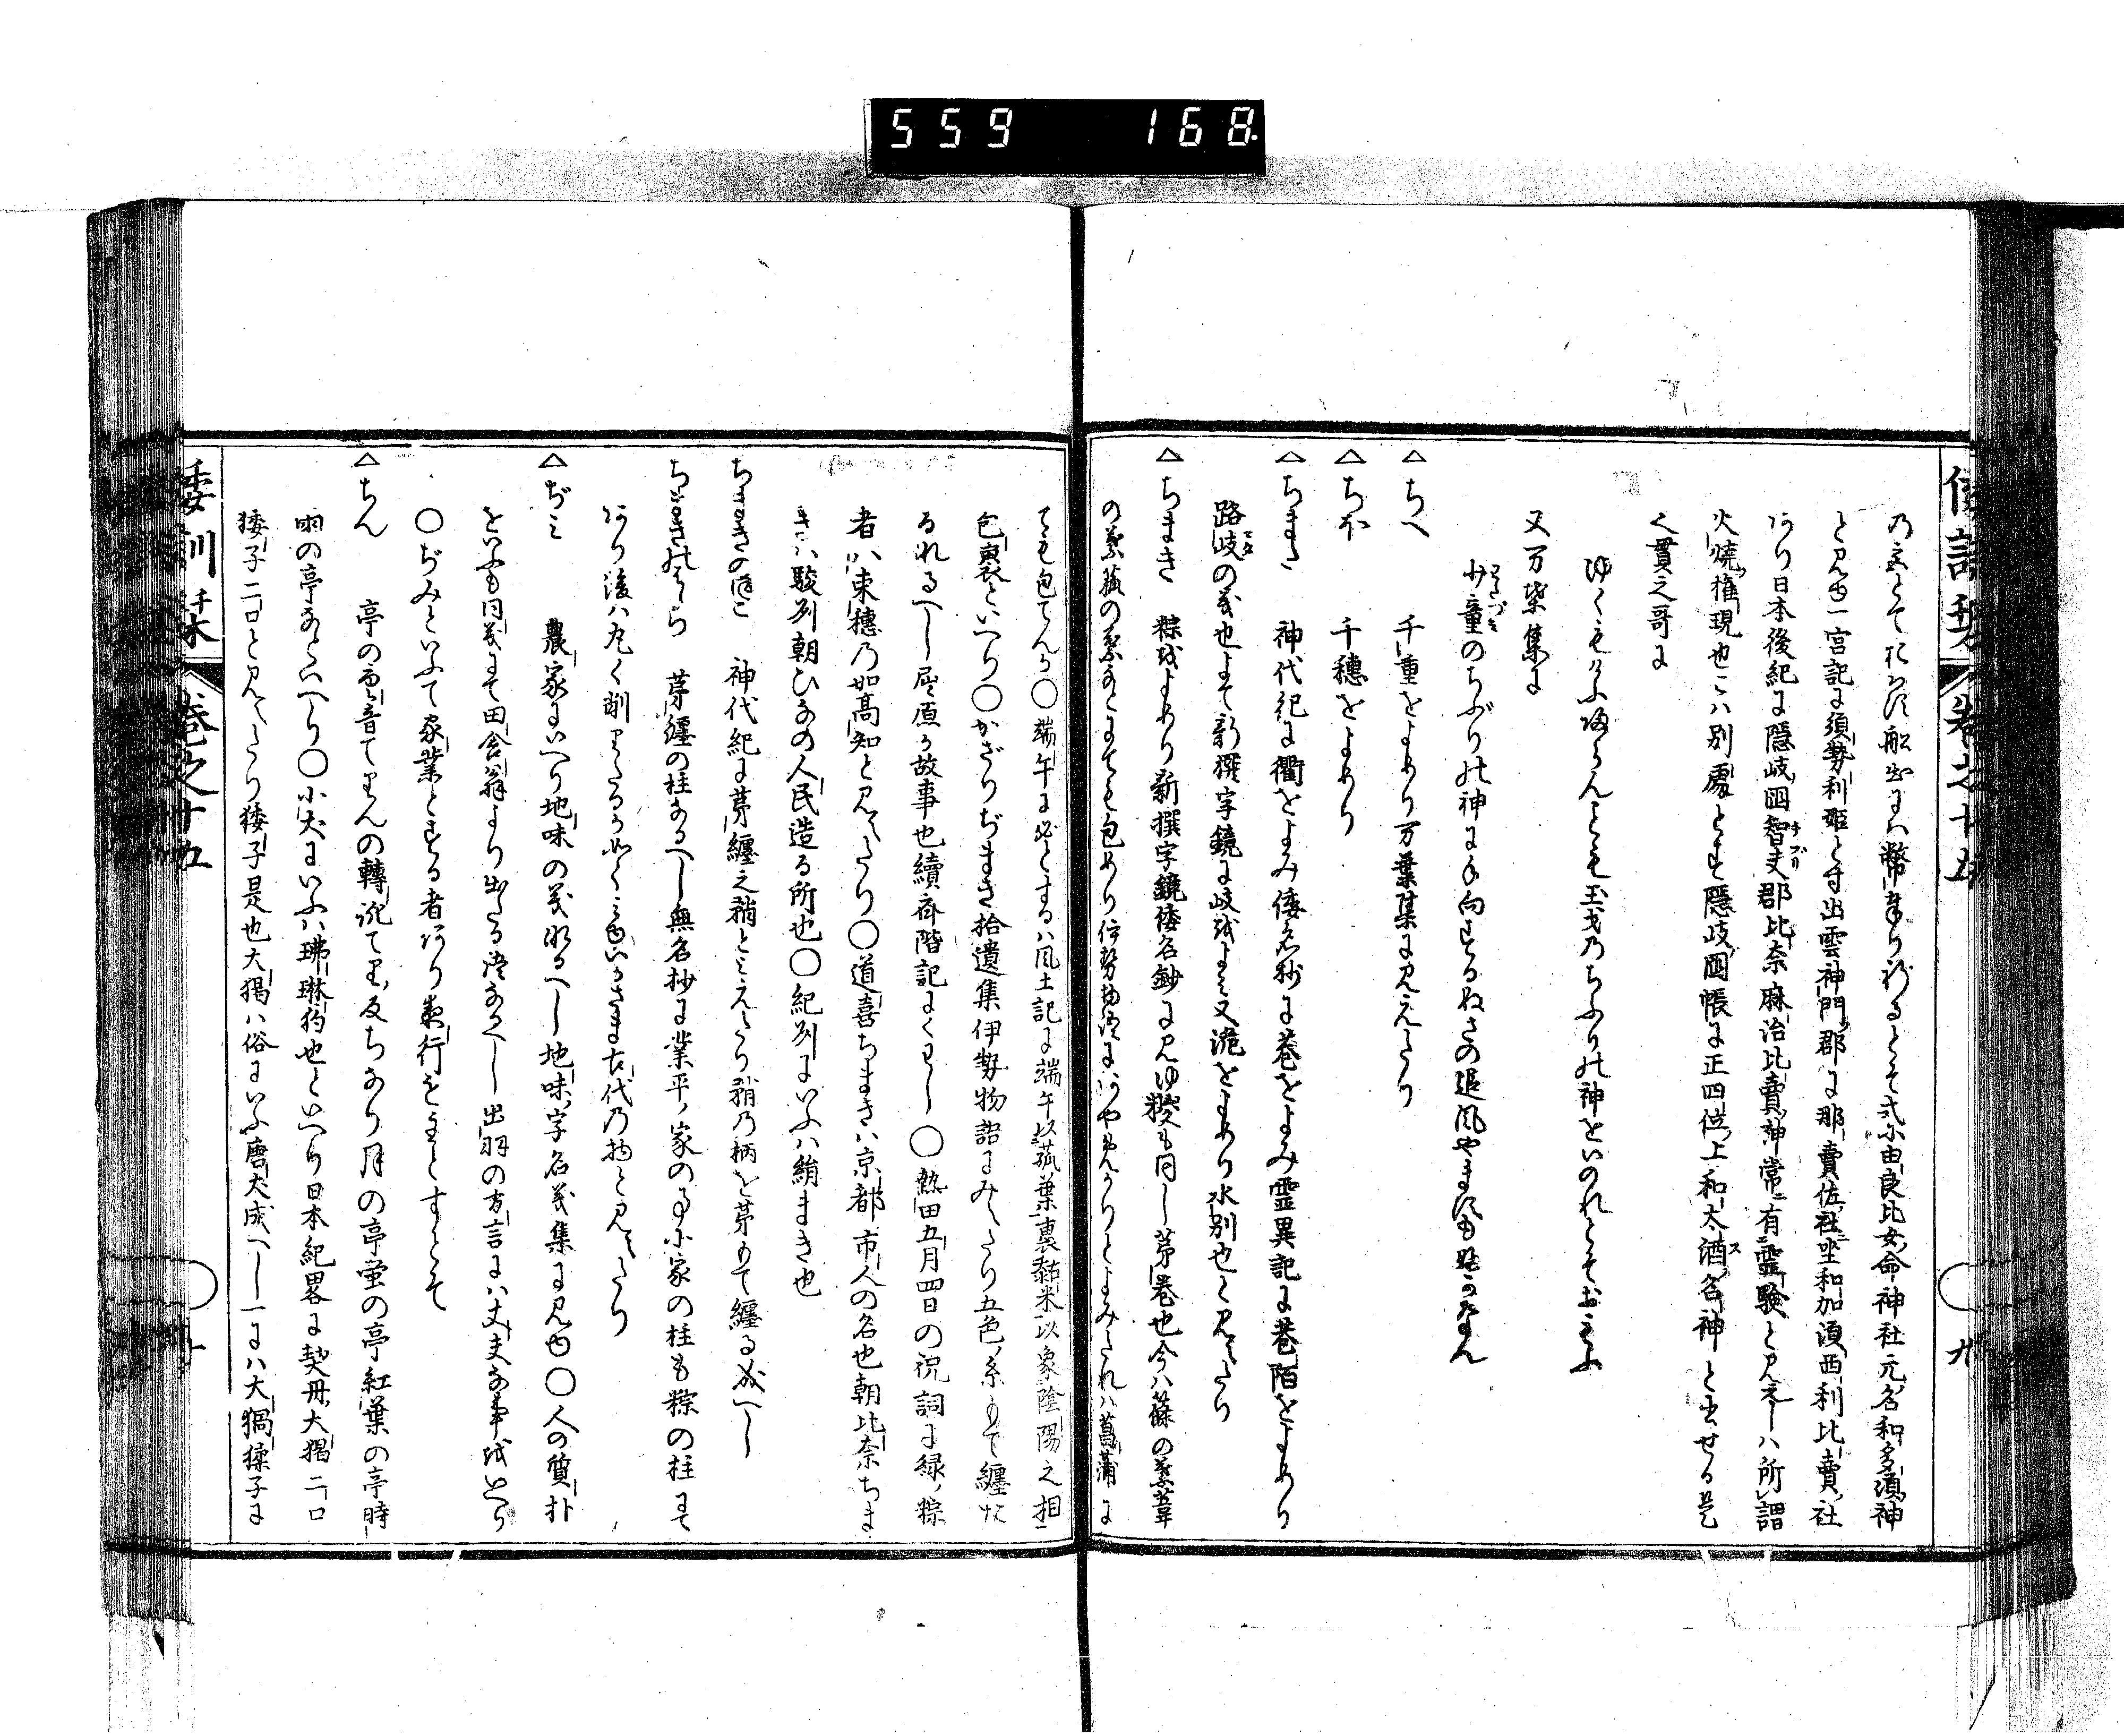 559 168
倭訓栞 巻之十五 九
乃玉とてたいまつ船出にハ幣奉り祈るとそ式に由良比女命神社元名和多須神
と見ゆ一宮記に須勢利姫と す出雲神門郡に那賣佐社坐和加須西利比賣社
あり日本後紀に隠岐國智夫郡比奈麻治比賣神常ニ有霊驗と見えしハ所謂
火焼権現也こハ別處とす隠岐國帳に正四位上和太酒名神と出せる是
く貫之哥に
ゆくもけふ帰らんときも玉戈乃ちふりの神をいのれとそおもふ
又万葉集に
わたつミ
少童のちぶりの神に手向するぬさの追風やまず も吹かなん
△ちへ 千重をよめり万葉集に見えたり
△ちほ 千穂をよめり
△ちまた 神代紀に衢をよみ倭名抄に巷をよみ霊異記に巷陌をよめり
路岐の義也よて新撰字鏡に岐をよミ又 をよめり水別也と見えたり
△ちまき 粽をよめり新撰字鏡倭名鈔に見ゆ も同し茅巻也今ハ篠の葉葦
の葉菰の葉なとにても包めり伊勢物語にあやめかりとよみたれハ菖蒲に
ても包てんか〇端午に必とするハ風土記に端午以菰葉裏黏米以象陰陽之相
包裹といへり〇かざりぢまき拾遺集伊勢物語にみえたり五色ノ糸もて纏
るれるへし屈原か故事也續斉階記にくはし〇熱田五月四日の祝詞に緑ノ粽
者ハ束穂乃如高知と見えたり〇道喜ちまきハ京都市人の名也朝比奈ちま
きハ駿州朝ひなの人民造る所也〇紀州にいふハ絹まき也
ちまきのほこ 神代紀に茅纏之矟とミえたり矟乃柄を茅もて纏る成へし
ちまきはしら 茅纏の柱なるへし無名抄に業平ノ家の事に家の柱も粽の柱にて
あり後ハ丸く削りたるか如くミゆいかさま古代乃物と見えたり
△ぢミ 農家にいへり地味の義なるへし地味ノ字名義集に見ゆ〇人の質朴
をいふも同義にて田舎翁より出たる詞なるへし出羽の方言にハ丈夫な事をいへり
〇ぢみといふて家業とする者あり 行をむねとすとそ
△ちん 亭の唐音てりんの轉訛てり反ちなり月の亭蛍の亭紅葉の亭時
雨の亭なといへり〇小犬にいふハ琲琳狗也といへり日本紀畧に契丹大猲二口
㹻子二口と見えたり㹻子是也大猲ハ俗にいふ唐犬成へし一にハ大猲猱子に
倭訓栞 巻之十五